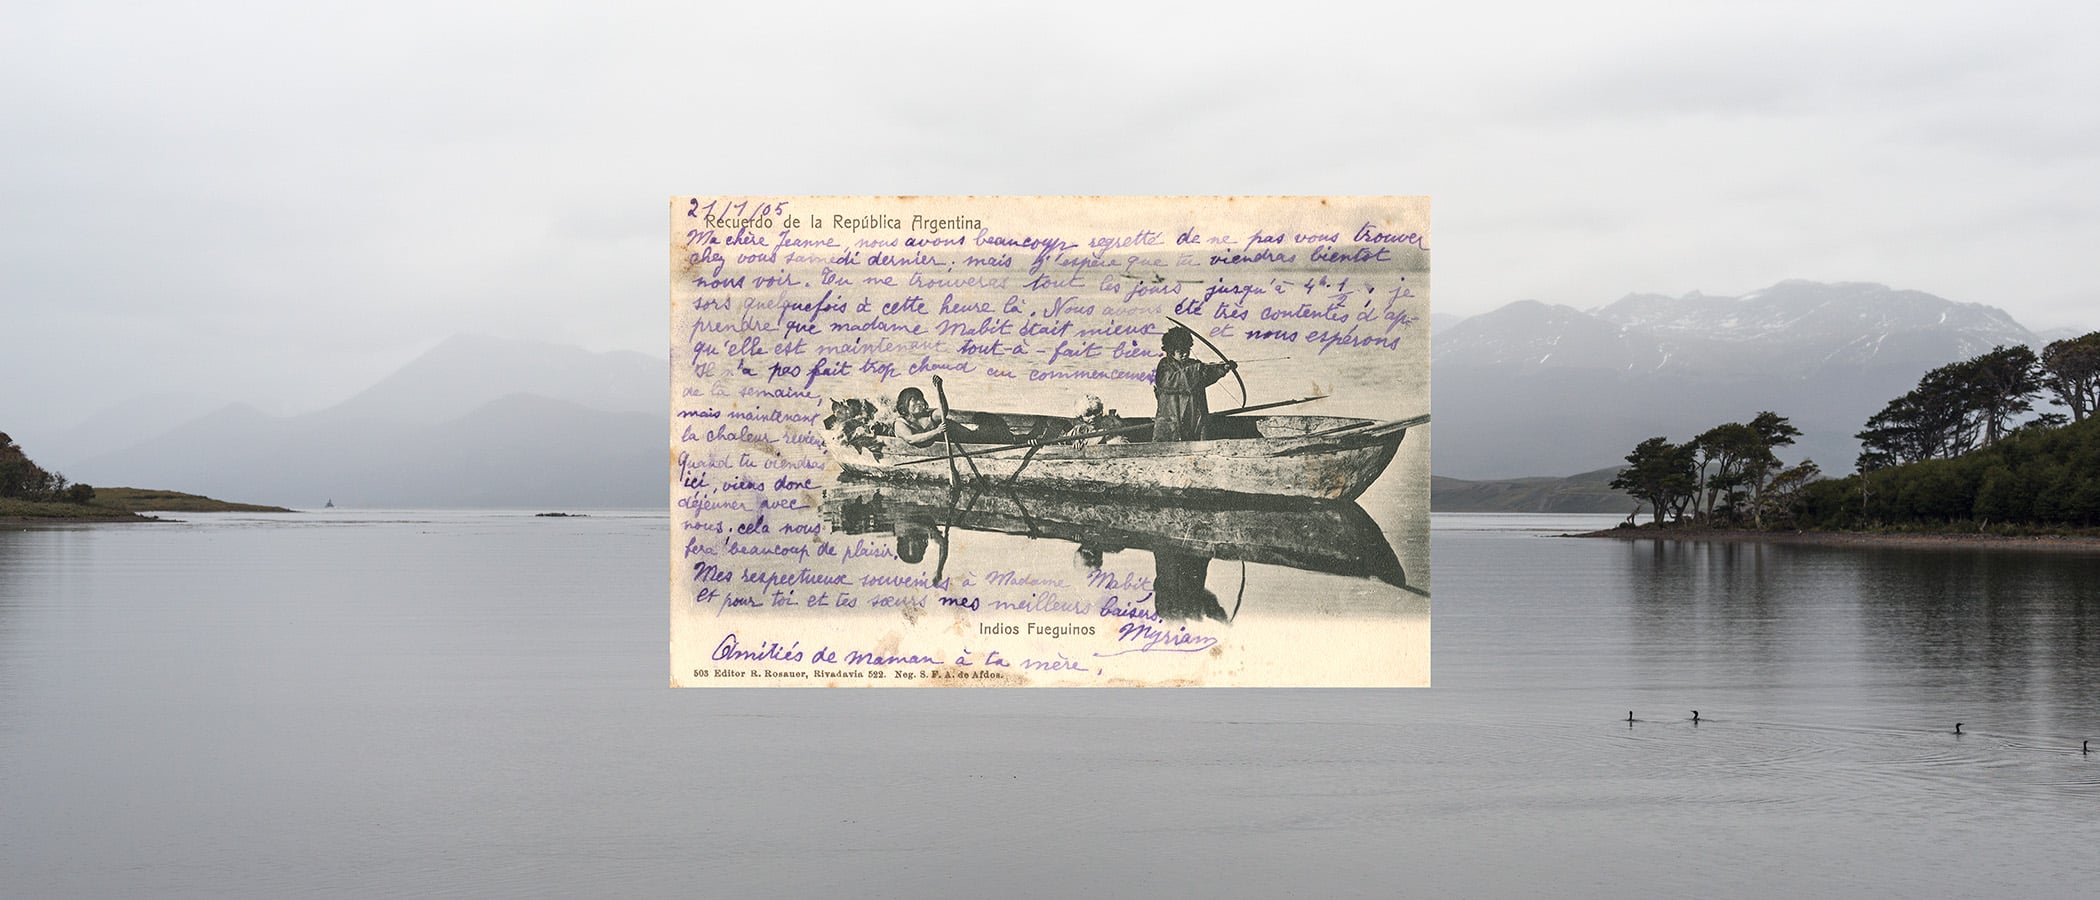 21/1/05
Recuerdo de la República Argentina
Ma chère Jeanne, nous avons beaucoup regretté de ne pas vous trouver
chez vous samedi dernier; mais j'espère que tu viendras bientôt
nous voir. Tu me trouveras tout les jours jusqu'à 4h. 1/2, je
sors quelquefois à cette heure là. Nous avons été très contentes d'ap-
prendre que madame Mabit était mieux et nous espérons
qu'elle est maintenant tout-à-fait bien.
Il n'a pas fait trop chaud au commencement
de la semaine,
mais maintenant
la chaleur revient.
Quand tu viendras
ici, viens donc
déjeuner avec
nous, cela nous
fera beaucoup de plaisir.
Mes respectueux souvenirs à Madame Mabit,
et pour toi et tes sœurs mes meilleurs baisers.
Indios Fueguinos
Myriam
Amitiés de maman à ta mère.
503 Editor R. Rosauer, Rivadavia 522. Neg. S. F. A. de Afdos.